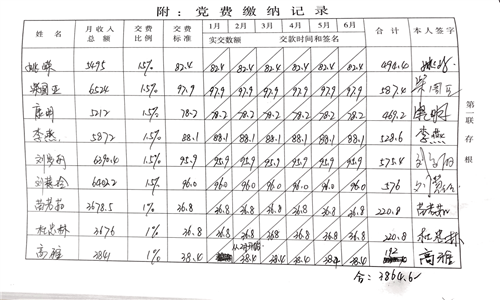 附：党费缴纳记录
姓名 月收入总额 交费比例 交费标准 1月 2月 3月 4月 5月 6月 合计 本人签字
实交数额 交款时间和签名
5495 1.5% 82.4 82.4 82.4 82.4 82.4 82.4 82.4 494.4
荣国亚 6524 1.5% 97.9 97.9 97.9 97.9 97.9 97.9 97.9 587.4 荣国亚
康明 5212 1.5% 78.2 78.2 78.2 78.2 78.2 78.2 78.2 469.2 康明
李燕 5872 1.5% 88.1 88.1 88.1 88.1 88.1 88.1 88.1 528.6 李燕
6390.4 1.5% 95.9 95.9 95.9 95.9 95.9 95.9 95.9 575.4
6402.2 1.5% 96.0 96.0 96.0 96.0 96.0 96.0 96.0 576
3678.5 1% 36.8 36.8 36.8 36.8 36.8 36.8 36.8 220.8
杜忠林 3676 1% 36.8 36.8 36.8 36.8 36.8 36.8 36.8 220.8 杜忠林
高雅 3841 1% 38.4 从2月开始 38.4 38.4 38.4 38.4 38.4 192 高雅
合：3864.6
第一联存根